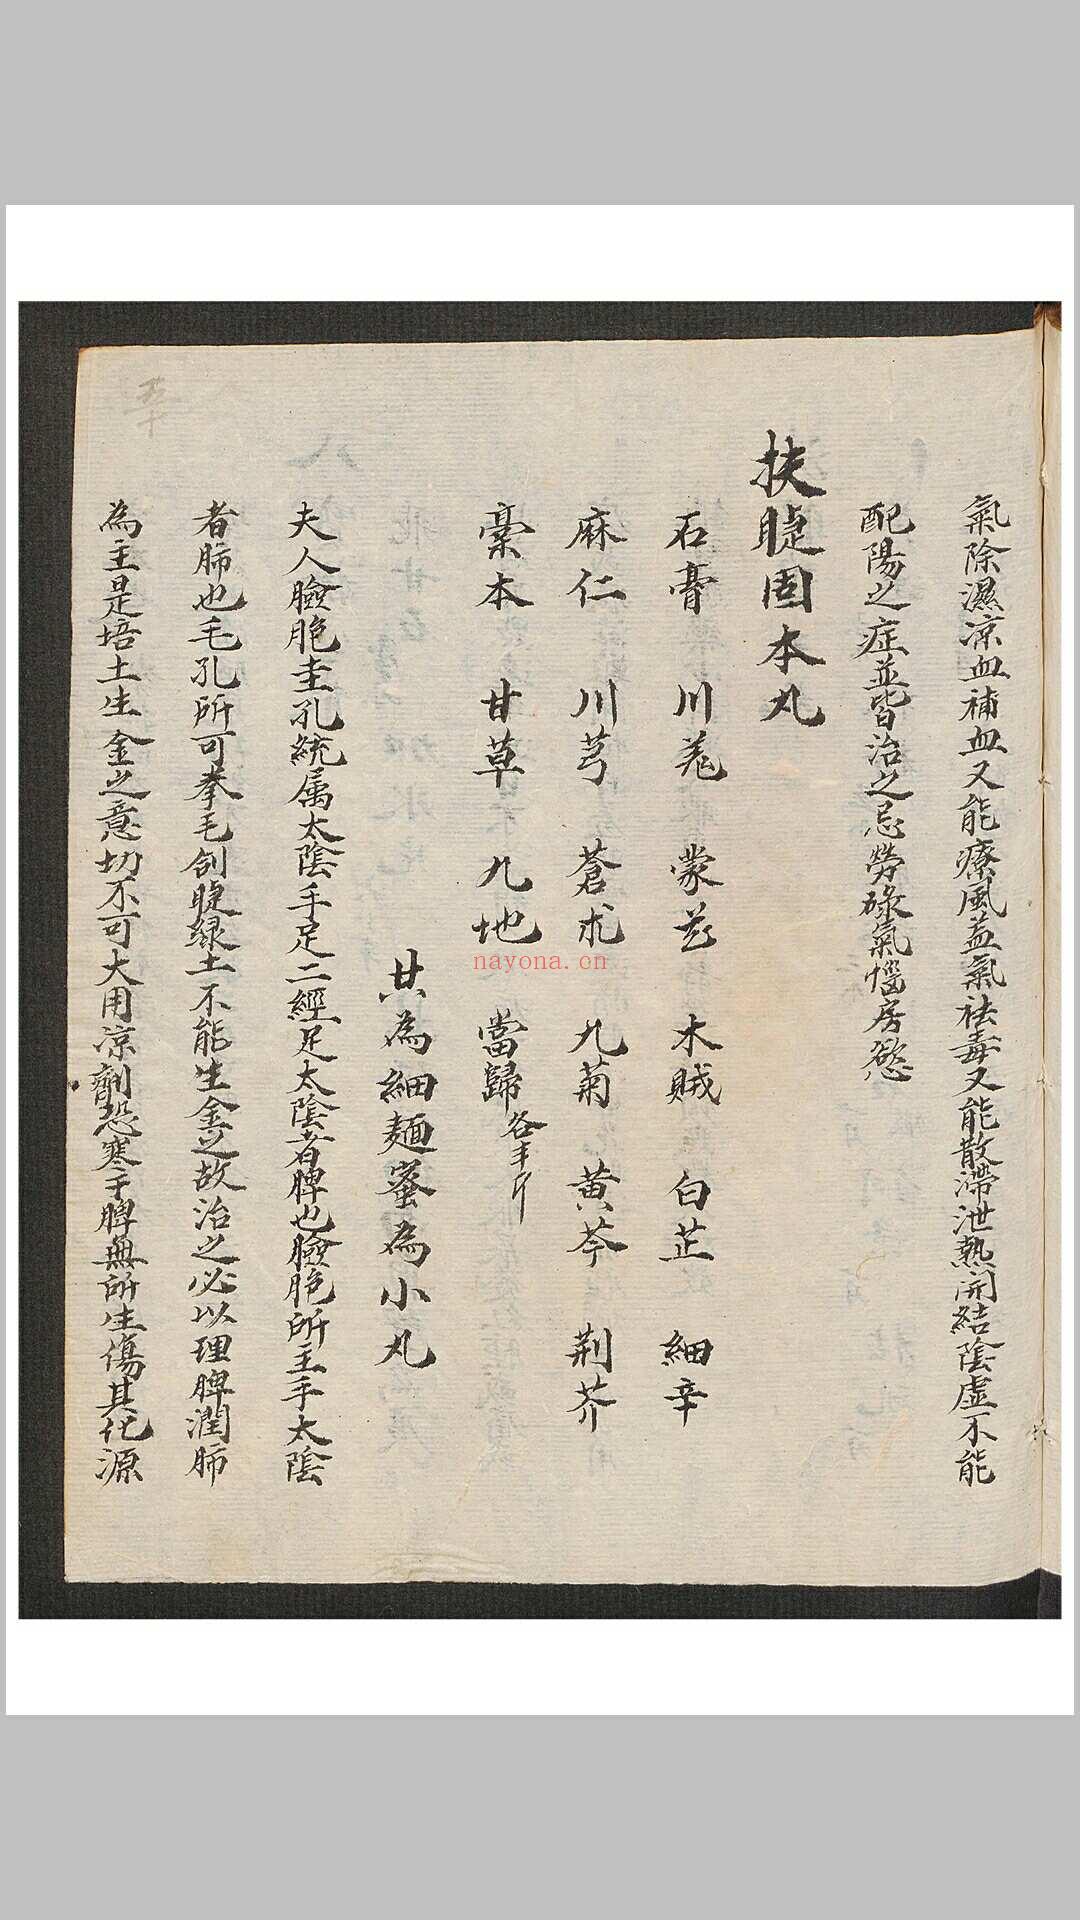 氣除濕凉血補血又能療風益氣祛毒又能散滯泄熱開結陰虛不能
配陽之症並皆治之忌勞碌氣惱房慾
扶睫固本丸
石膏 川羌 蒙花 木賊 白芷 細辛
麻仁 川芎 蒼朮 九菊 黄芩 荆芥
藁本 甘草 九地 當歸 各半斤
共為細麵蜜為小丸
夫人臉胞圭孔統属太陰手足二經足太陰者脾也臉胞所主手太陰
者肺也毛孔所可拳毛刽睫緑土不能生金之故治之必以理脾潤肺
為主是培土生金之意切不可大用凉劑恐寒于脾無所生傷其化源
五十
nayona.cn